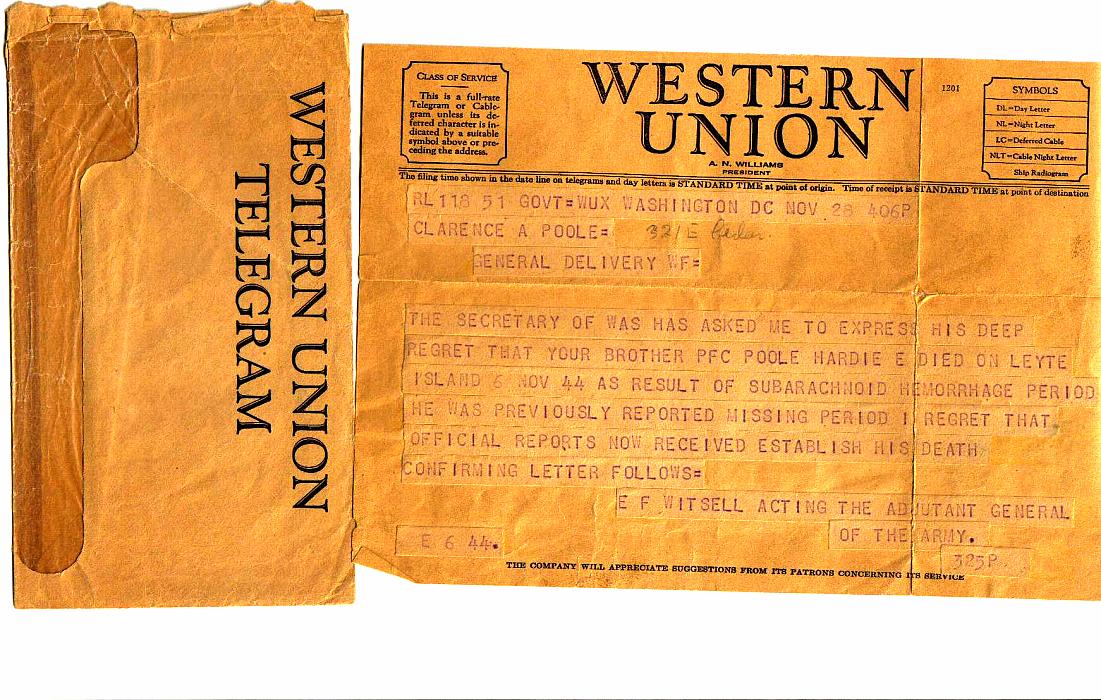 WESTERN UNION
TELEGRAM
CLASS OF SERVICE
This is a full-rate
Telegram or Cable-
gram unless its de-
ferred character is in-
dicated by a suitable
symbol above or pre-
ceding the address.
WESTERN
UNION
A. N. WILLIAMS
PRESIDENT
1201
SYMBOLS
DL=Day Letter
NL=Night Letter
LC=Deferred Cable
NLT=Cable Night Letter
Ship Radiogram
The filing time shown in the date line on telegrams and day letters is STANDARD TIME at point of origin. Time of receipt is STANDARD TIME at point of destination
RL118 51 GOVT=WUX WASHINGTON DC NOV 28 406P
CLARENCE A POOLE= 321 E
GENERAL DELIVERY WF=
THE SECRETARY OF WAS HAS ASKED ME TO EXPRESS HIS DEEP
REGRET THAT YOUR BROTHER PFC POOLE HARDIE E DIED ON LEYTE
ISLAND 6 NOV 44 AS RESULT OF SUBARACHNOID HEMORRHAGE PERIOD
HE WAS PREVIOUSLY REPORTED MISSING PERIOD I REGRET THAT
OFFICIAL REPORTS NOW RECEIVED ESTABLISH HIS DEATH
CONFIRMING LETTER FOLLOWS=
E F WITSELL ACTING THE ADJUTANT GENERAL
OF THE ARMY.
E 6 44.
325P
THE COMPANY WILL APPRECIATE SUGGESTIONS FROM ITS PATRONS CONCERNING ITS SERVICE